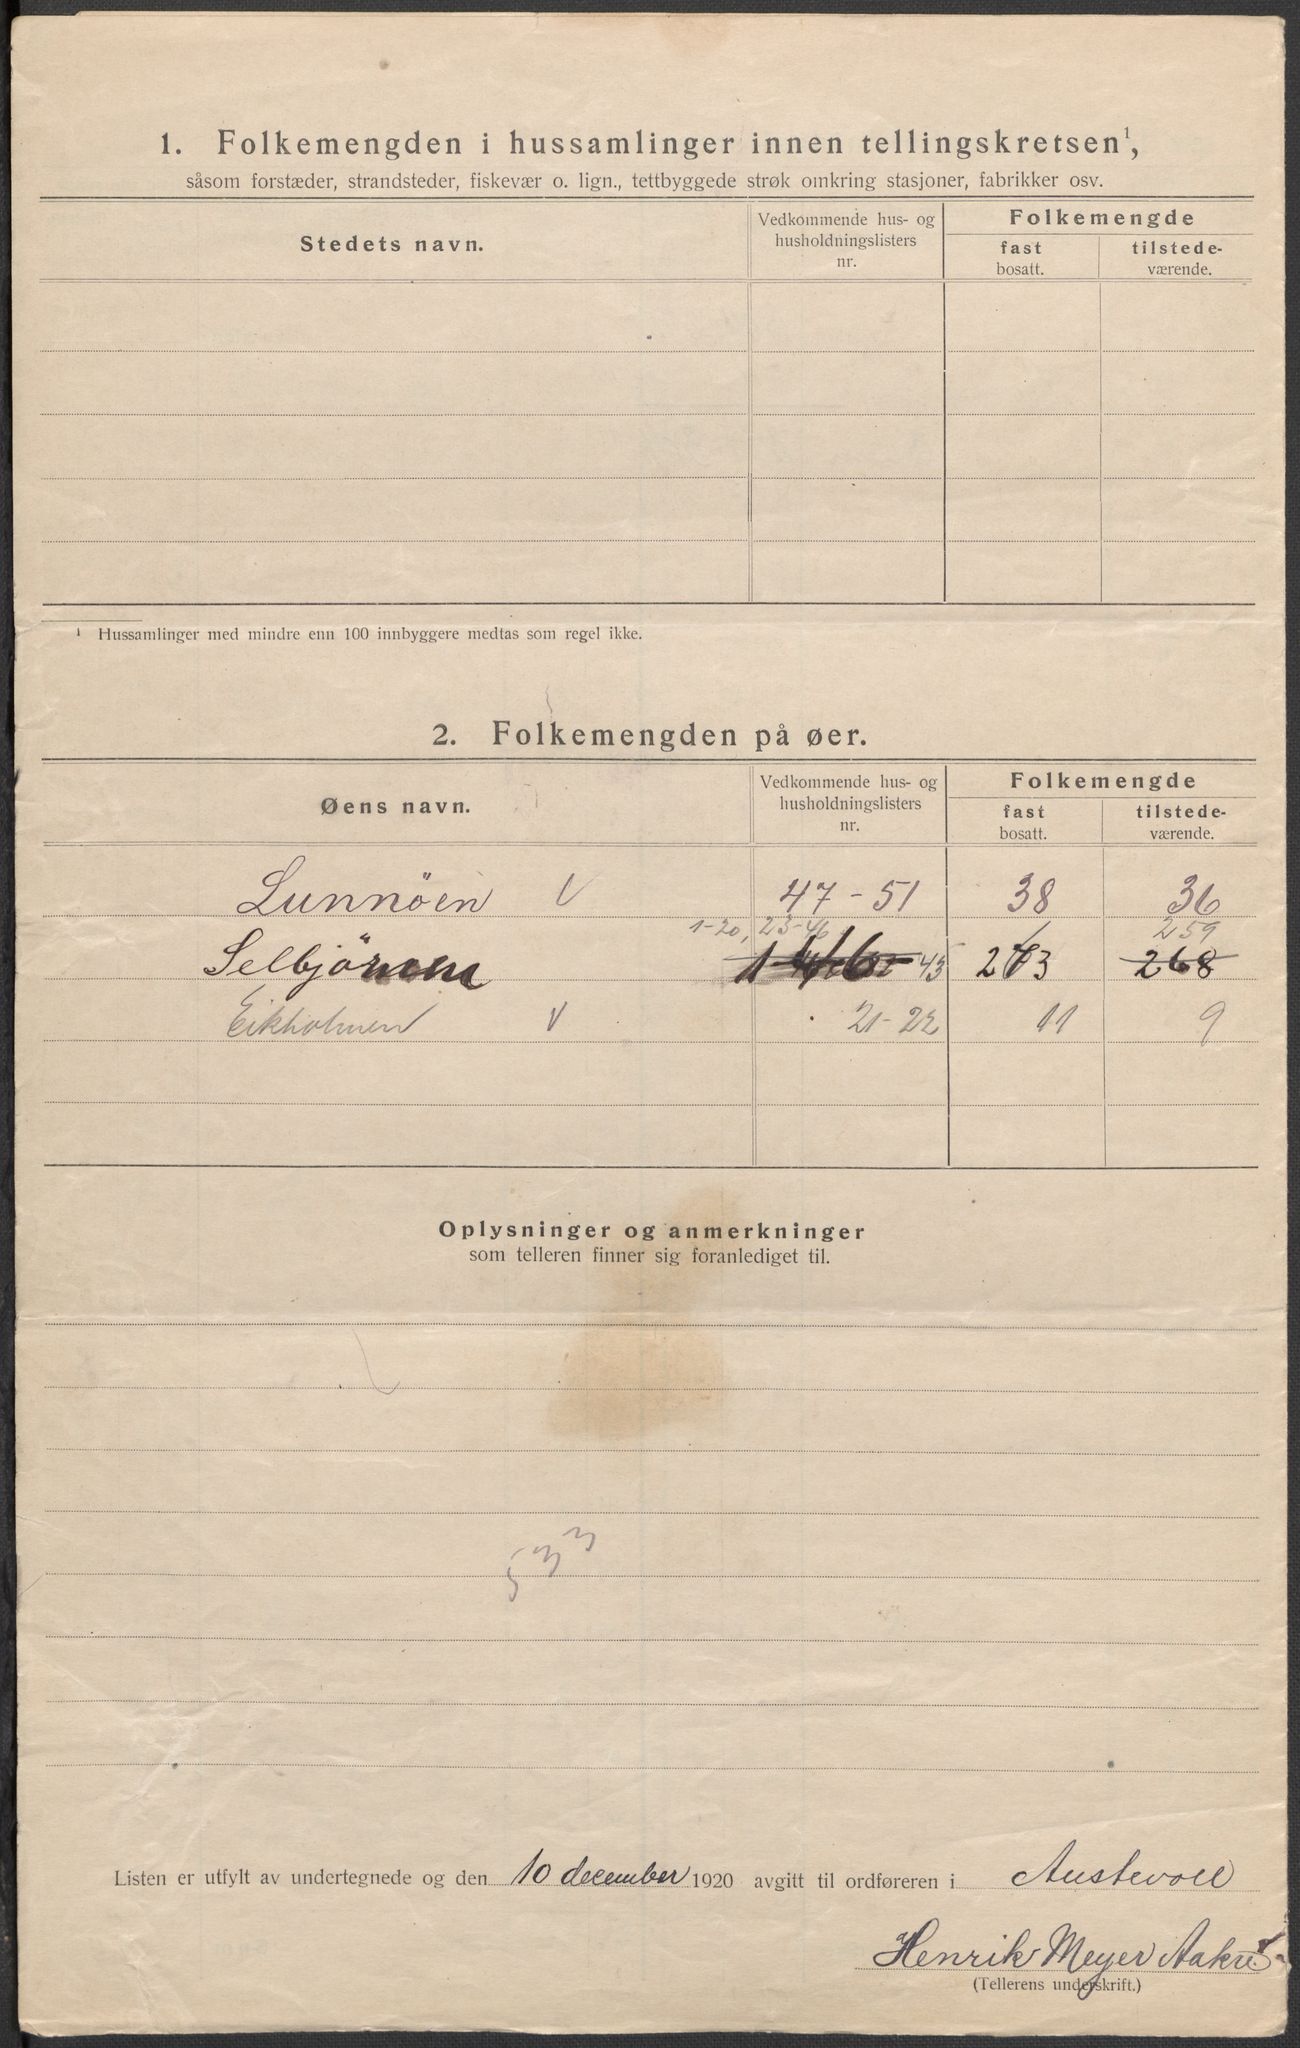 1. Folkemengden i hussamlinger innen tellingskretsen¹,
såsom forstæder, strandsteder, fiskevær o. lign., tettbyggede strøk omkring stasjoner, fabrikker osv.
Stedets navn.
Vedkommende hus- og
husholdningslisters
nr.
Folkemengde
fast
bosatt.
tilstede-
værende.
¹ Hussamlinger med mindre enn 100 innbyggere medtas som regel ikke.
2. Folkemengden på øer.
Øens navn.
Vedkommende hus- og
husholdningslisters
nr.
Folkemengde
fast
bosatt.
tilstede-
værende.
Lunnöen V 47 - 51 38 36
1-20, 23-46 259
Selbjörnen 45 268
Eikholmen V 21-22 11 9
Oplysninger og anmerkninger
som telleren finner sig foranlediget til.
533
Listen er utfylt av undertegnede og den 10 december 1920 avgitt til ordføreren i Austevoll
Henrik Meyer Aakre
(Tellerens underskrift.)